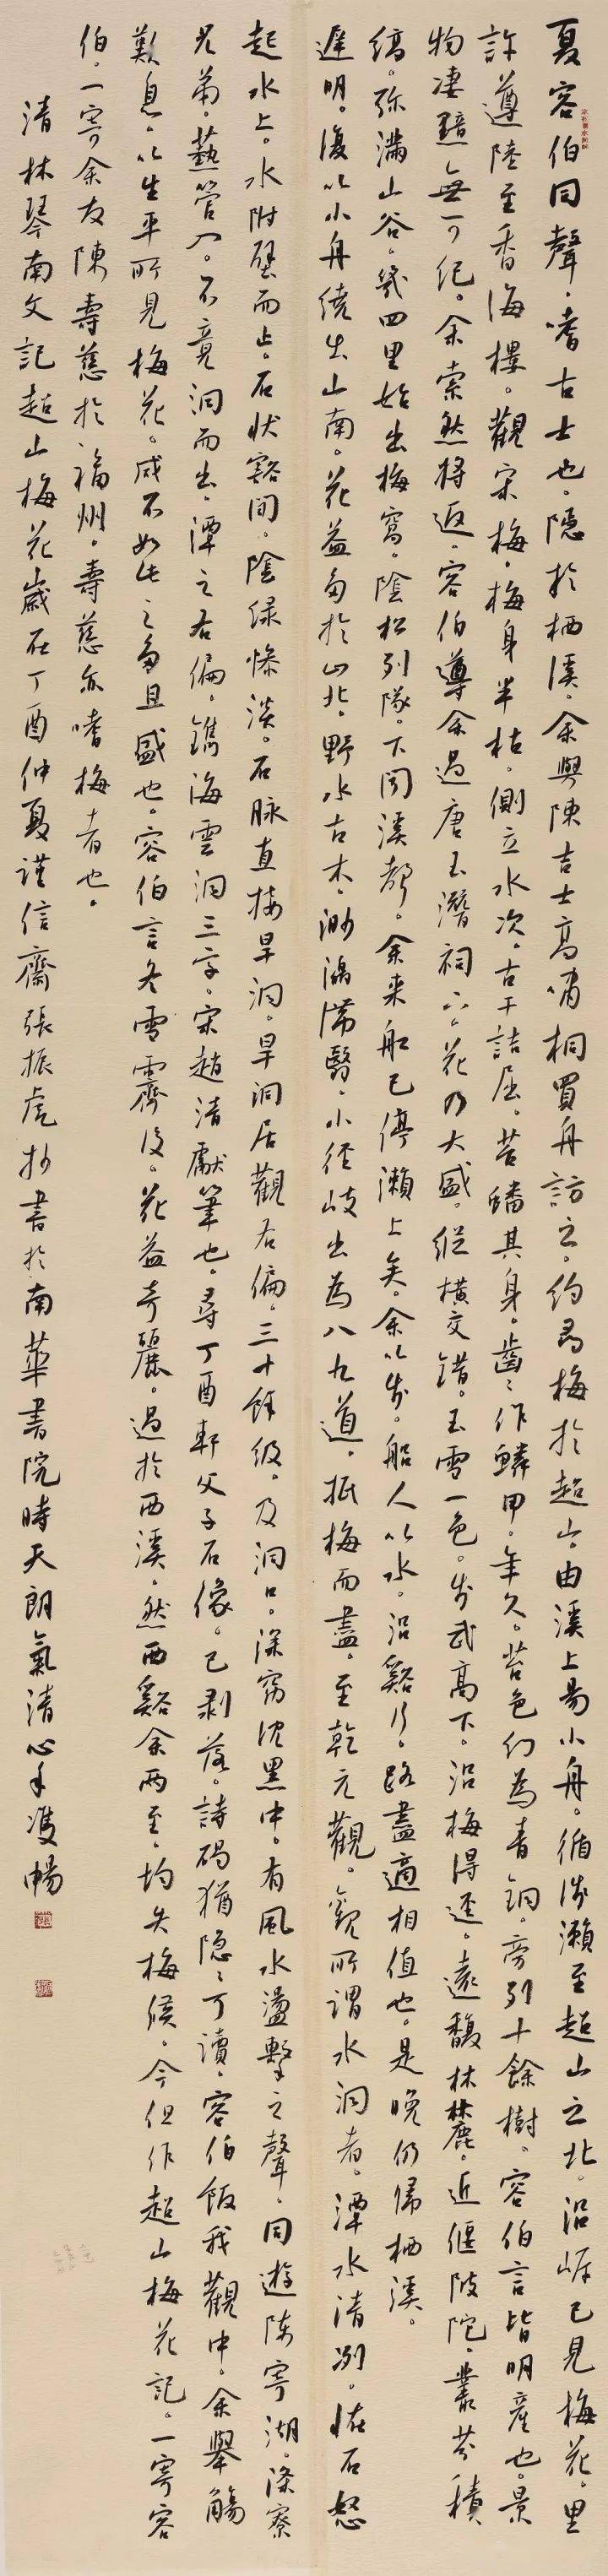 夏容伯同聲。嗜古士也。隱於栖溪。余與陳吉士高嘯桐買舟訪之。約尋梅於超山。由溪上易小舟。循淺瀨至超山之北。沿岸已見梅花。里
許遵陸至香海樓。觀宋梅。梅身半枯。側立水次。古干詰屈。苔蟠其身。齒齒作鱗甲。年久。苔色幻為青銅。旁列十餘樹。容伯言皆明產也。景
物凄黯無可紀。余索然將返。容伯導余過唐玉潛祠下。花乃大盛。縱橫交錯。玉雪一色。步武高下。沿梅得逕。遠馥林麓。近偃陂陀。叢芬積
縞。弥滿山谷。幾四里始出梅窩。陰松列隊。下聞溪聲。余來船已停瀨上矣。余以步。船人以水。沿谿行。路盡適相值也。是晚仍歸栖溪。
遲明。復以小舟繞出山南。花益多於山北。野水古木。渺滿滯翳。小徑歧出為八九道。抵梅而盡。至乾元觀。觀所謂水洞者。潭水清冽。怪石怒
起水上。水附壁而止。石狀豁間。陰綠慘淡。石脉直接旱洞。旱洞居觀右偏。三十餘級。及洞口。深窈沈黑中。有風水盪擊之聲。同遊陳寄湖。滌寮
兄弟。爇管入。不竟洞而出。潭之右偏。鐫海雲洞三字。宋趙清獻筆也。尋丁酉軒父子石像。已剥落。詩碣猶隱隱可讀。容伯飯我觀中。余舉觴
歎息。以生平所見梅花。咸不如此之多且盛也。容伯言冬雪霽後。花益奇麗。過於西溪。然西谿余兩至。均失梅候。今但作超山梅花記。一寄容
伯。一寄余友陳壽慈於福州。壽慈亦嗜梅者也。
清林琴南文記超山梅花歲在丁酉仲夏謹信齋張振虎抄書於南華書院時天朗氣清心手雙暢